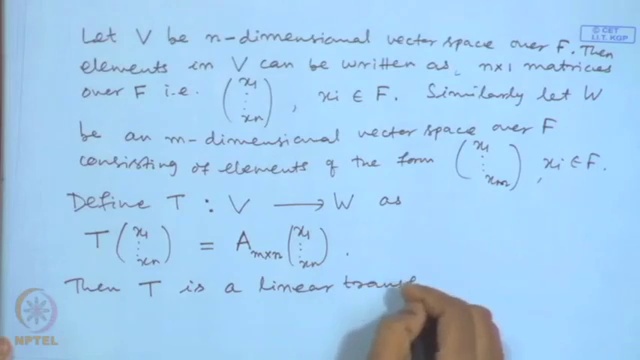 © CET
I.I.T. KGP
Let V be n-dimensional vector space over F. Then
elements in V can be written as, n×1 matrices
over F i.e. (x₁ ⋮ xₙ), xᵢ ∈ F. Similarly let W
be an m-dimensional vector space over F
consisting of elements of the form (x₁ ⋮ xₘ), xᵢ ∈ F.
Define T : V → W as
T(x₁ ⋮ xₙ) = Aₘₓₙ(x₁ ⋮ xₙ).
Then T is a linear transf
NPTEL